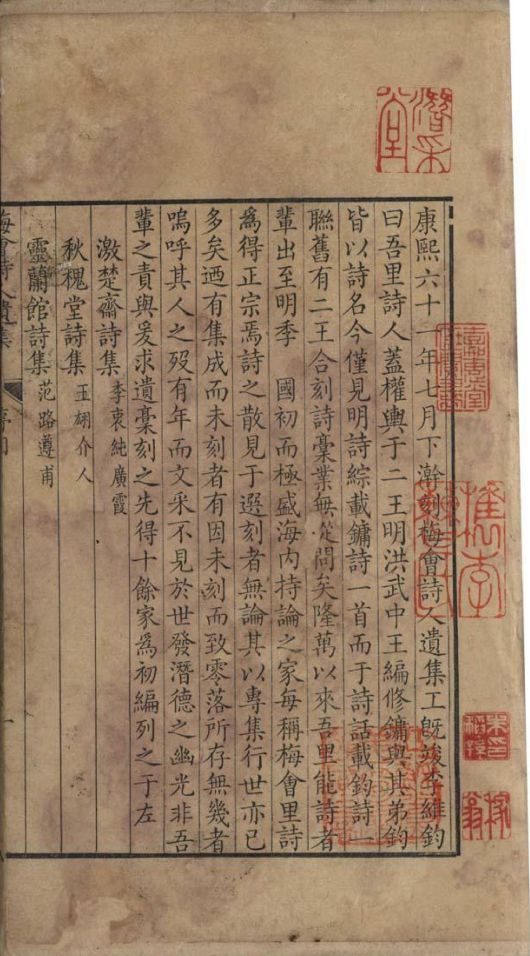 康熙六十一年七月下澣刻梅會詩人遺集工既竣李維鈞
曰吾里詩人蓋權輿于二王明洪武中王編修鏞與其弟鈞
皆以詩名今僅見明詩綜載鏞詩一首而于詩話載鈞詩一
聯舊有二王合刻詩稾業無從問矣隆萬以來吾里能詩者
輩出至明季 國初而極盛海內持論之家每稱梅會里詩
爲得正宗焉詩之散見于選刻者無論其以專集行世亦已
多矣迺有集成而未刻者有因未刻而致零落所存無幾者
嗚呼其人之歿有年而文采不見於世發潛德之幽光非吾
輩之責與爰求遺稾刻之先得十餘家爲初編列之于左
激楚齋詩集 李衷純廣霞
秋槐堂詩集 王翃介人
靈蘭館詩集 范路遵甫
梅會詩人遺集
潛采堂
檇李